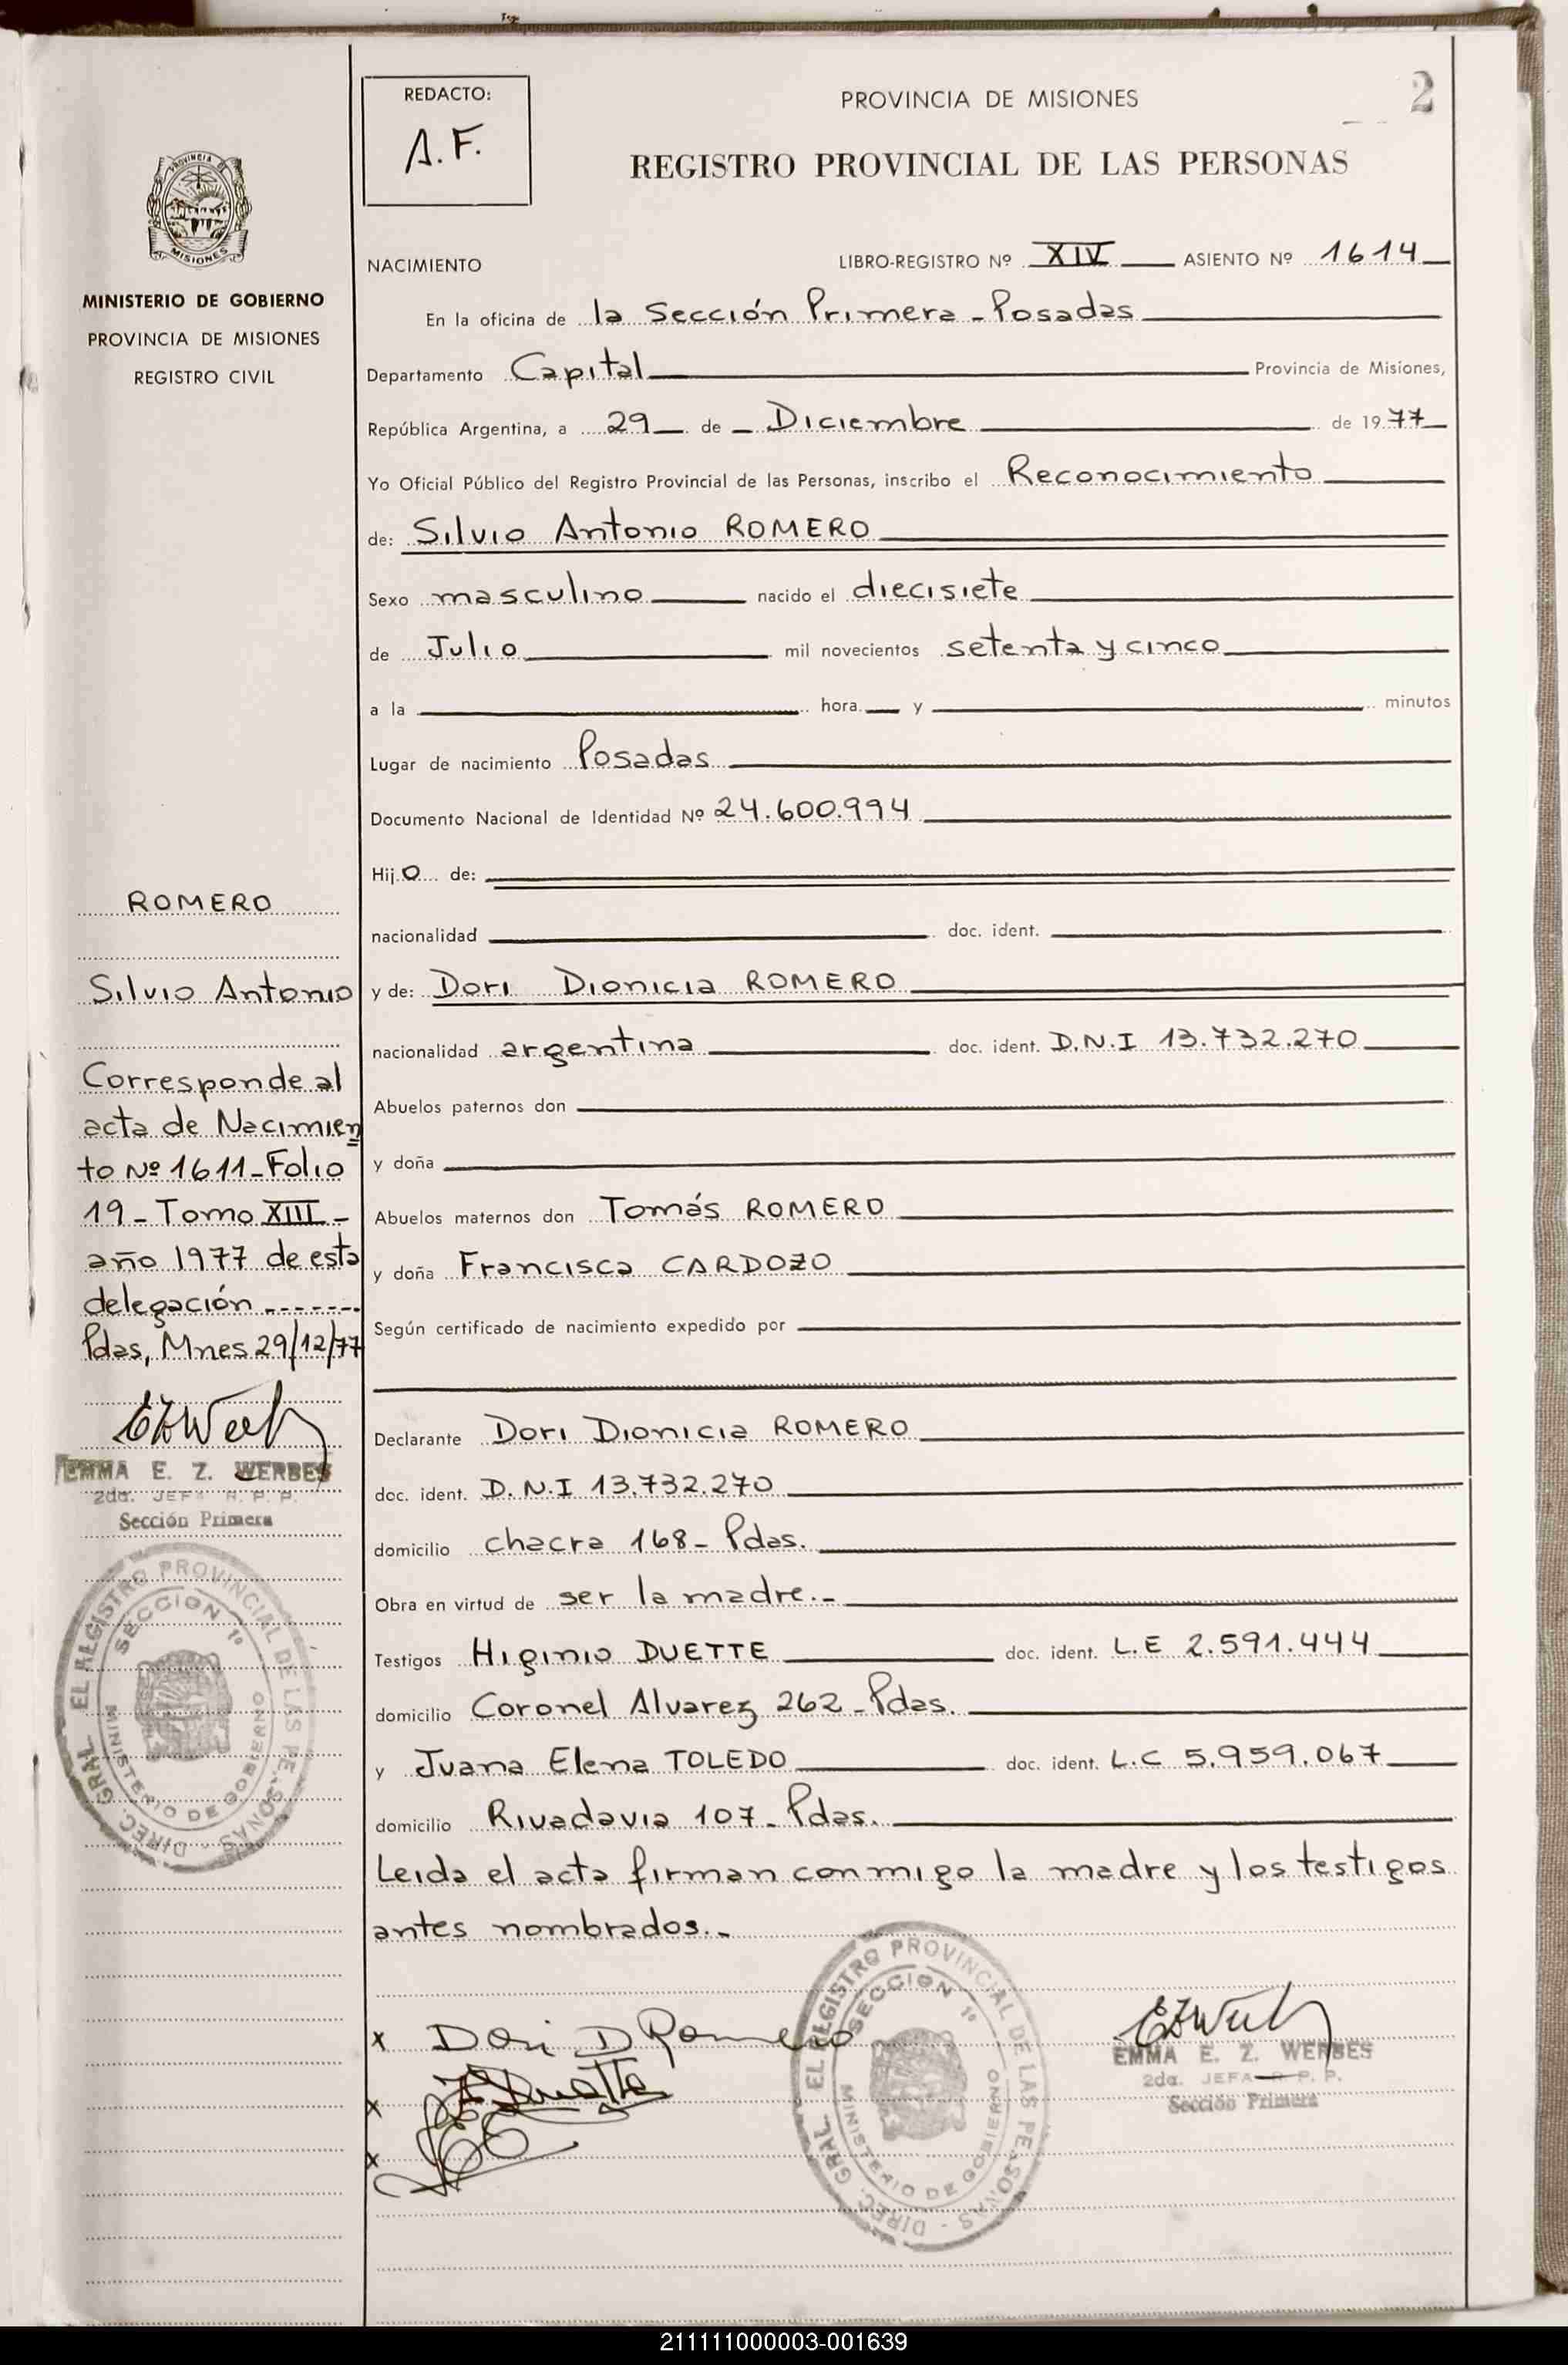 REDACTO:
A.F.
PROVINCIA DE MISIONES
2
REGISTRO PROVINCIAL DE LAS PERSONAS
PROVINCIA DE
MISIONES
MINISTERIO DE GOBIERNO
PROVINCIA DE MISIONES
REGISTRO CIVIL
NACIMIENTO LIBRO-REGISTRO Nº XIV ASIENTO Nº 1614
En la oficina de la Sección Primera - Posadas
Departamento Capital Provincia de Misiones,
República Argentina, a 29 de Diciembre de 1977
Yo Oficial Público del Registro Provincial de las Personas, inscribo el Reconocimiento
de: Silvio Antonio ROMERO
Sexo masculino nacido el diecisiete
de Julio mil novecientos setenta y cinco
a la hora y minutos
Lugar de nacimiento Posadas
Documento Nacional de Identidad Nº 24.600.994
Hijo de:
nacionalidad doc. ident.
y de: Dori Dionicia ROMERO
nacionalidad argentina doc. ident. D.N.I 13.732.270
Abuelos paternos don
y doña
Abuelos maternos don Tomás ROMERO
y doña Francisca CARDOZO
Según certificado de nacimiento expedido por
Declarante Dori Dionicia ROMERO
doc. ident. D.N.I 13.732.270
domicilio chacra 168 - Pdas.
Obra en virtud de ser la madre.-
Testigos Higinio DUETTE doc. ident. L.E 2.591.444
domicilio Coronel Alvarez 262 - Pdas.
y Juana Elena TOLEDO doc. ident. L.C 5.959.067
domicilio Rivadavia 107 - Pdas.
Leida el acta firman conmigo la madre y los testigos
antes nombrados.-
x Dori D Romero
x Duette
x
DIREC. GRAL. EL REGISTRO PROVINCIAL DE LAS PERSONAS -
SECCION 1º
MINISTERIO DE GOBIERNO
EMMA E. Z. WERBES
2da. JEFA R. P. P.
Sección Primera
ROMERO
Silvio Antonio
Corresponde al
acta de Nacimien
to Nº 1611 - Folio
19 - Tomo XIII -
año 1977 de esta
delegación -------
Pdas, Mnes 29/12/77
EMMA E. Z. WERBES
2da. JEFA R. P. P.
Sección Primera
DIREC. GRAL. EL REGISTRO PROVINCIAL DE LAS PERSONAS -
SECCION 1º
MINISTERIO DE GOBIERNO
211111000003-001639